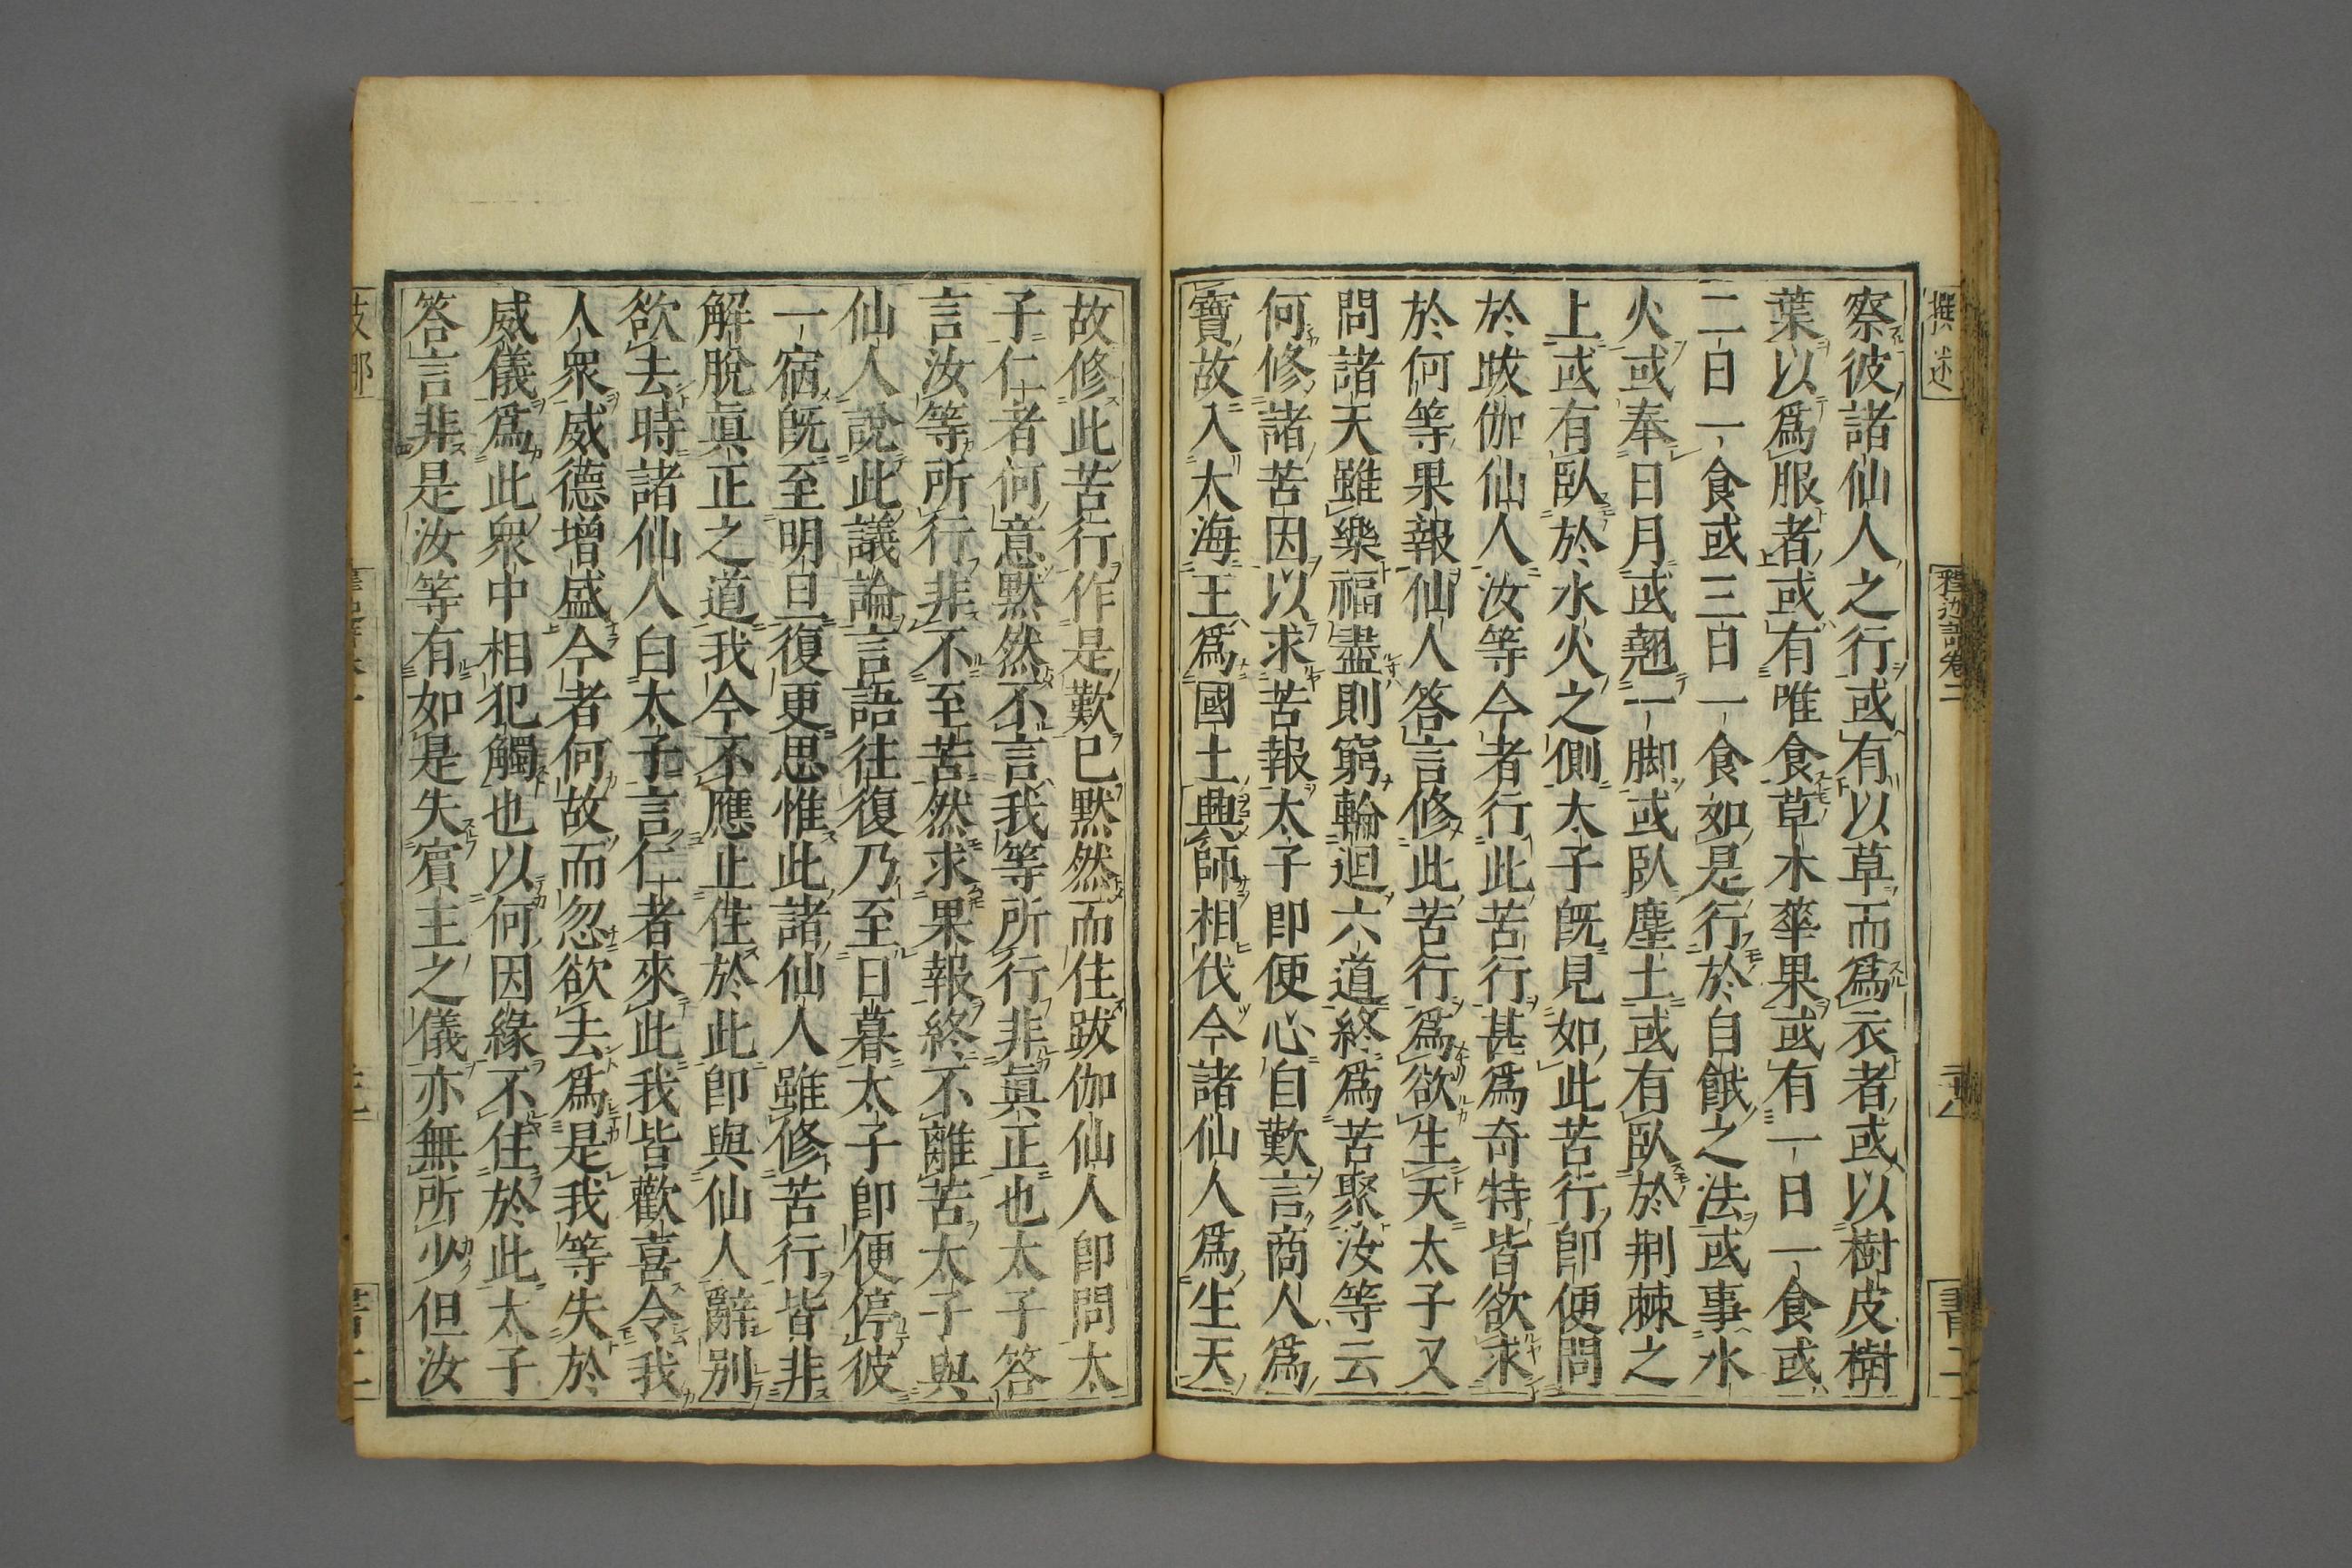 撰述
釋迦譜卷二
察彼諸仙人之行或有以草而爲衣者或以樹皮樹
葉以爲服者或有唯食草木華果或有一日一食或
二日一食或三日一食如是行於自餓之法或事水
火或奉日月或翹一脚或臥塵土或有臥於荆棘之
上或有臥於水火之側太子既見如此苦行即便問
於跋伽仙人汝等今者行此苦行甚爲奇特皆欲求
於何等果報仙人答言修此苦行爲欲生天太子又
問諸天雖樂福盡則窮輪迴六道終爲苦聚汝等云
何修諸苦因以求苦報太子即便心自歎言商人爲
寶故入大海王爲國土興師相伐今諸仙人爲生天
故修此苦行作是歎已默然而住跋伽仙人即問太
子仁者何意默然不言我等所行非眞正也太子答
言汝等所行非不至苦然求果報終不離苦太子與
仙人說此議論言語往復乃至日暮太子即便停彼
一宿既至明旦復更思惟此諸仙人雖修苦行皆非
解脫眞正之道我今不應止住於此即與仙人辭別
欲去時諸仙人白太子言仁者來此我皆歡喜令我
人衆威德增盛今者何故而忽欲去爲是我等失於
威儀爲此衆中相犯觸也以何因緣不住於此太子
答言非是汝等有如是失賓主之儀亦無所少但汝